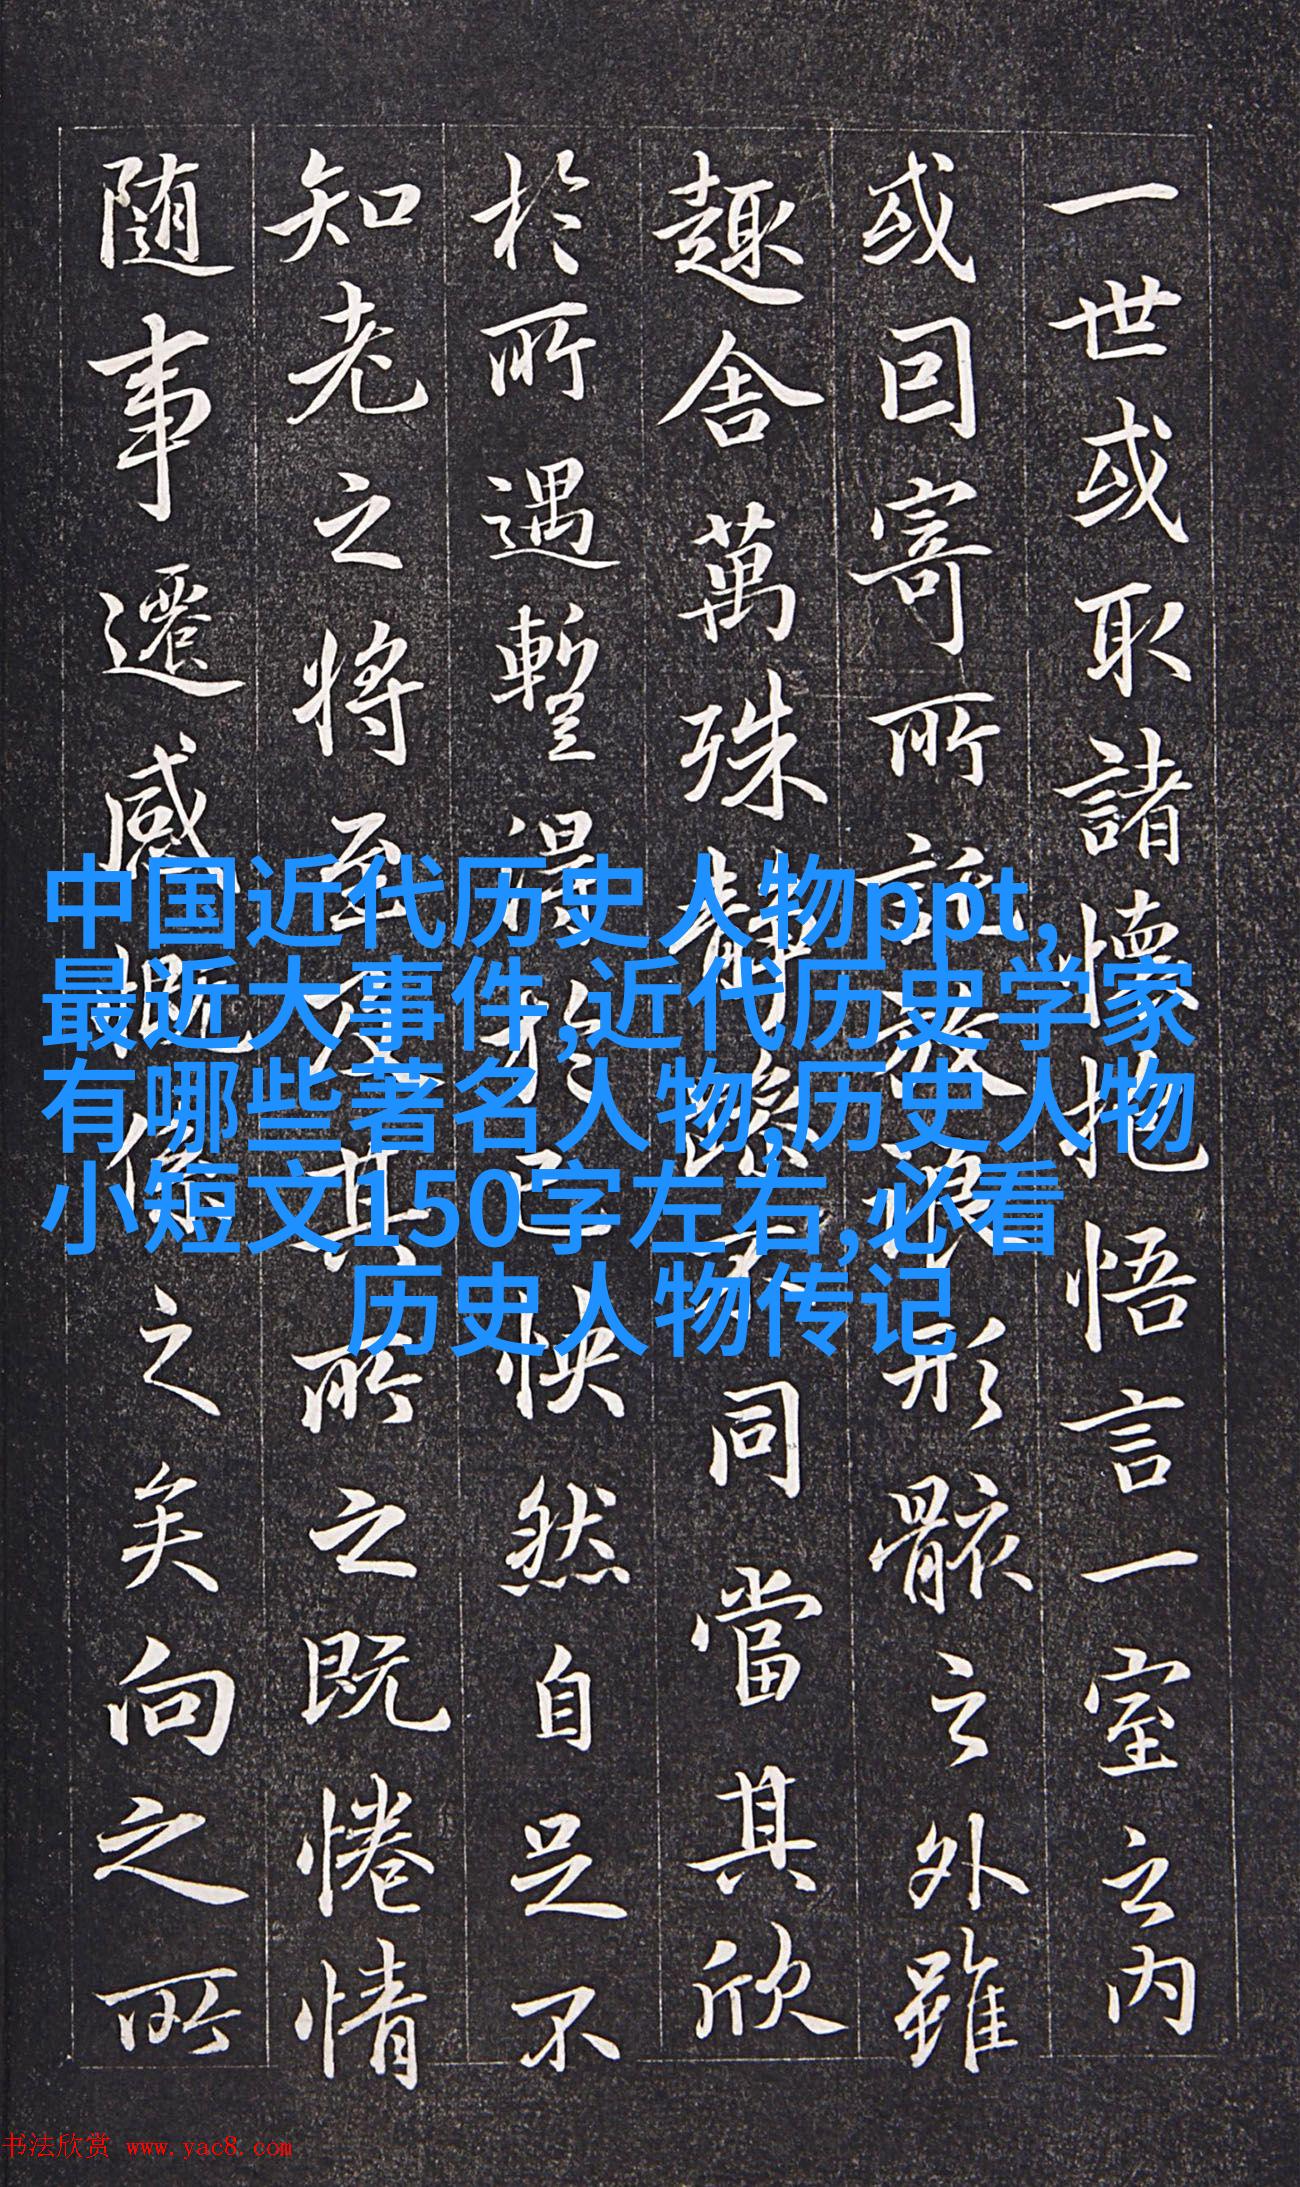 一世或取諸懷抱悟言一室之内
或因寄所託放浪形骸之外雖
趣舍萬殊静躁不同當其欣
於所遇暫得於己快然自足不
知老之將至及其所之既惓情
随事遷感慨係之矣向之所
中国近代历史人物ppt,
最近大事件,近代历史学家
有哪些著名人物,历史人物
小短文150字左右,必看
历史人物传记
书法欣赏 www.yac8.com